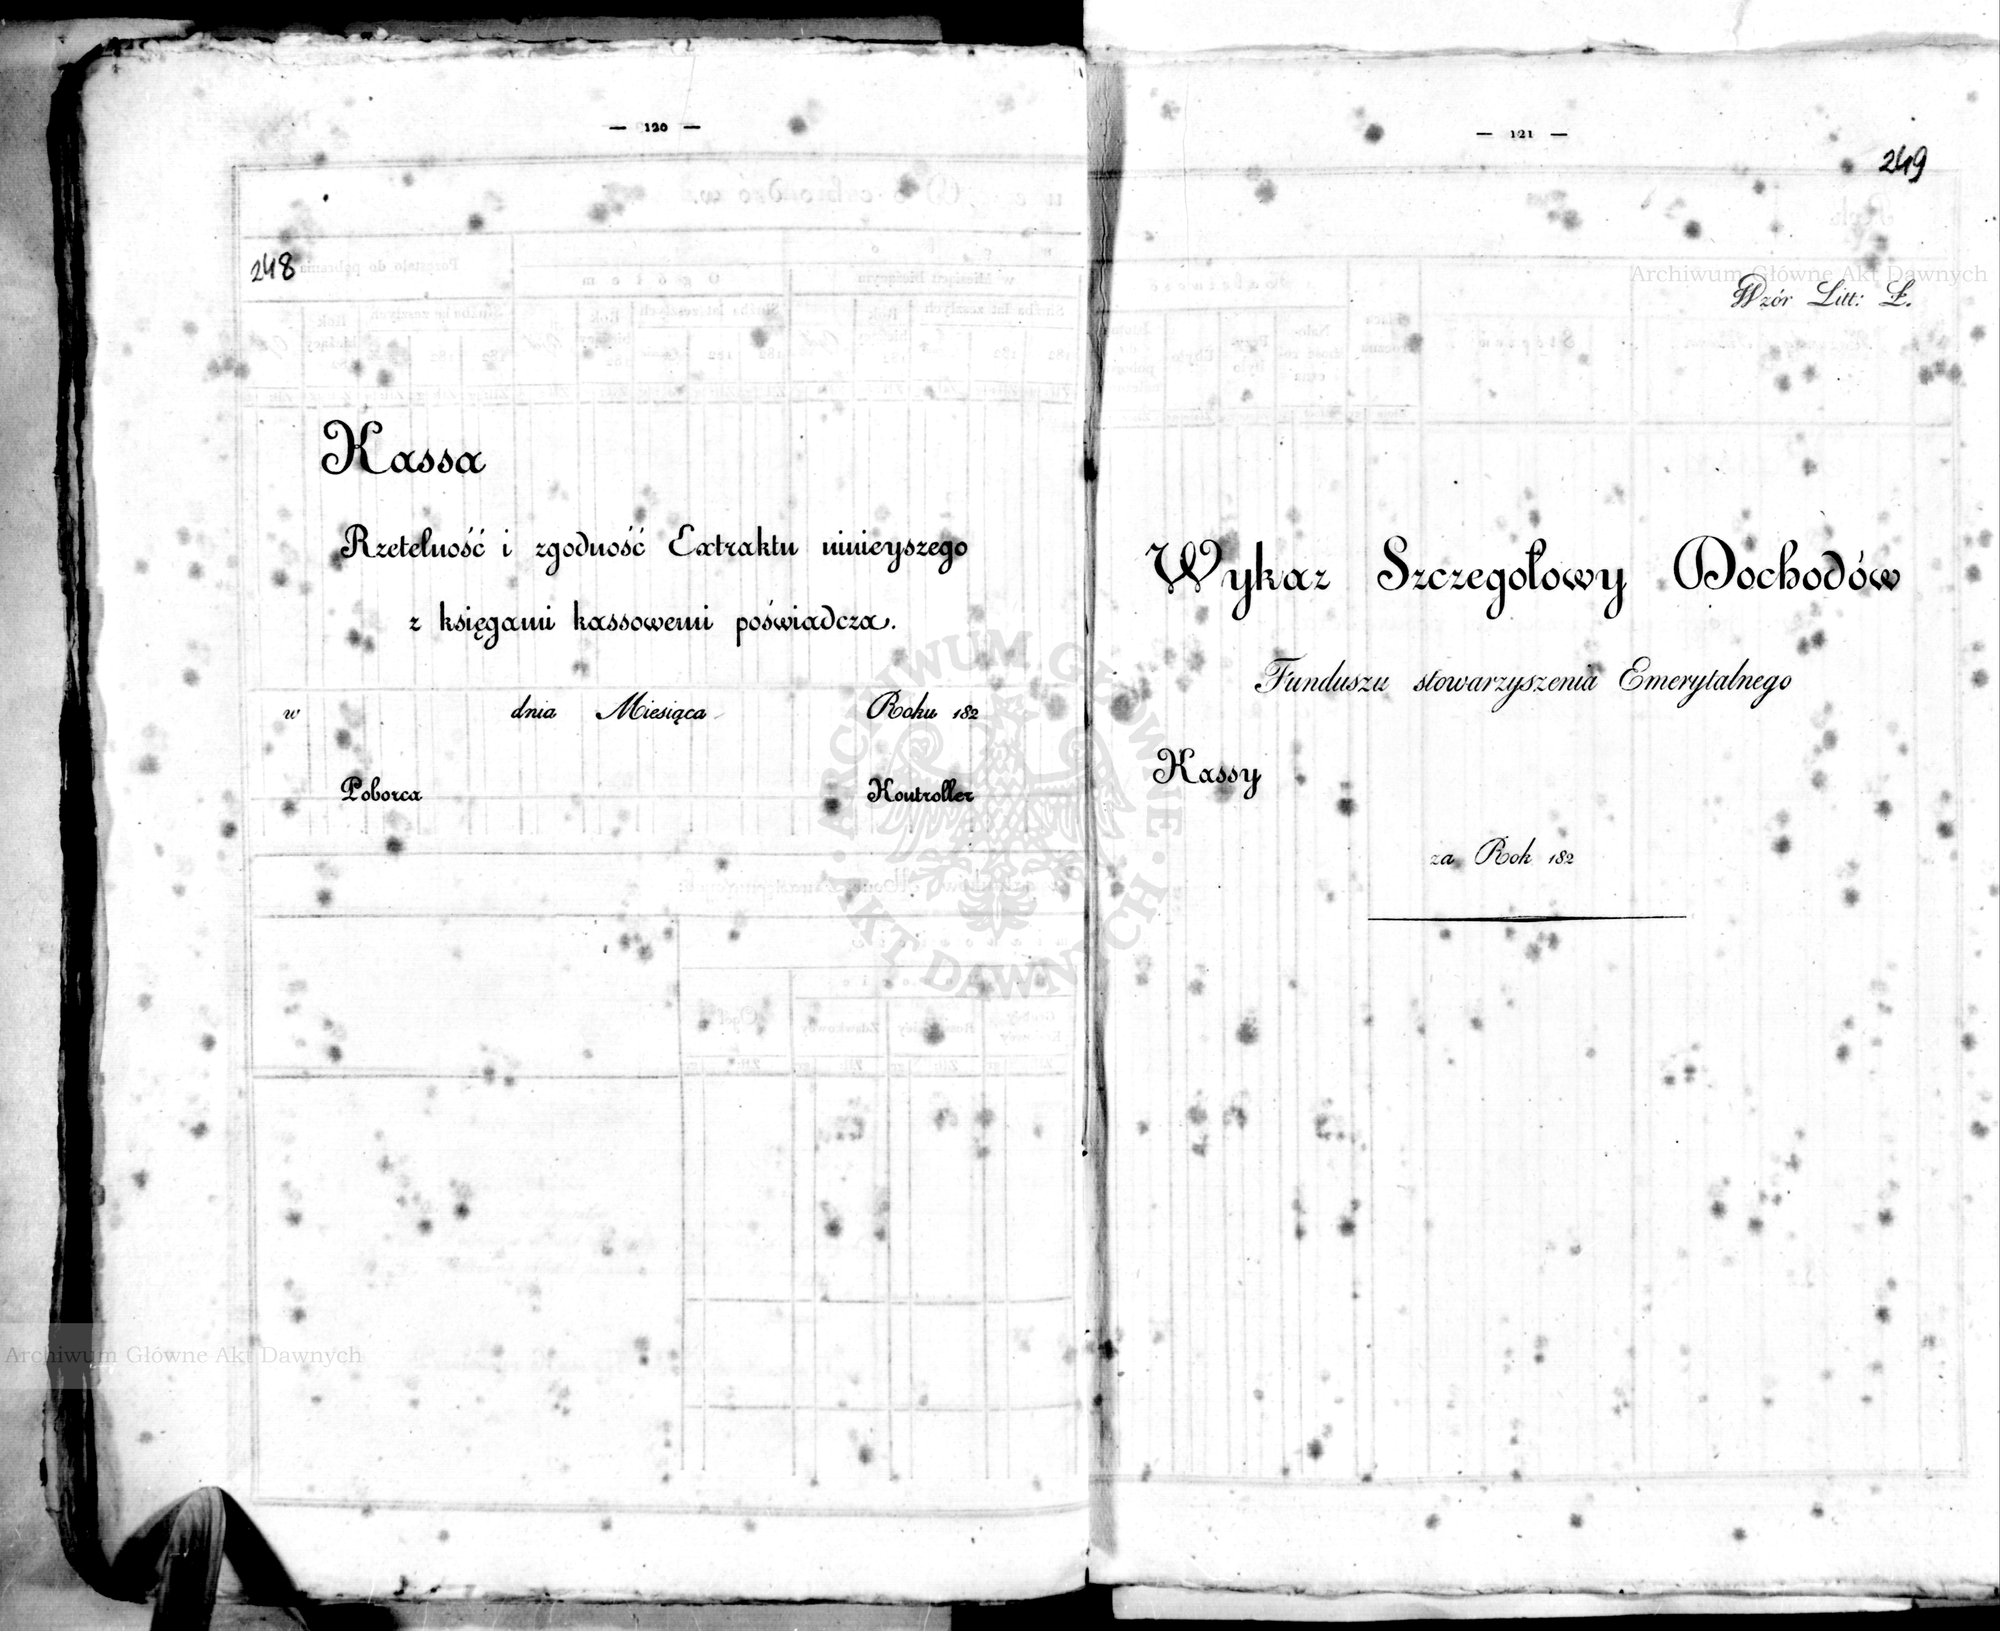 — 120 —
248
Kassa
Rzetelność i zgodność Extraktu ninieyszego
z księgami kassowemi poświadcza.
w dnia Miesiąca Roku 182
Poborca Kontroller
— 121 —
249
Archiwum Główne Akt Dawnych
Wzór Litt: Ł.
Wykaz Szczegołowy Dochodów
Funduszu stowarzyszenia Emerytalnego
Kassy
za Rok 182
ARCHIWUM GŁÓWNE
AKT DAWNYCH
Archiwum Główne Akt Dawnych